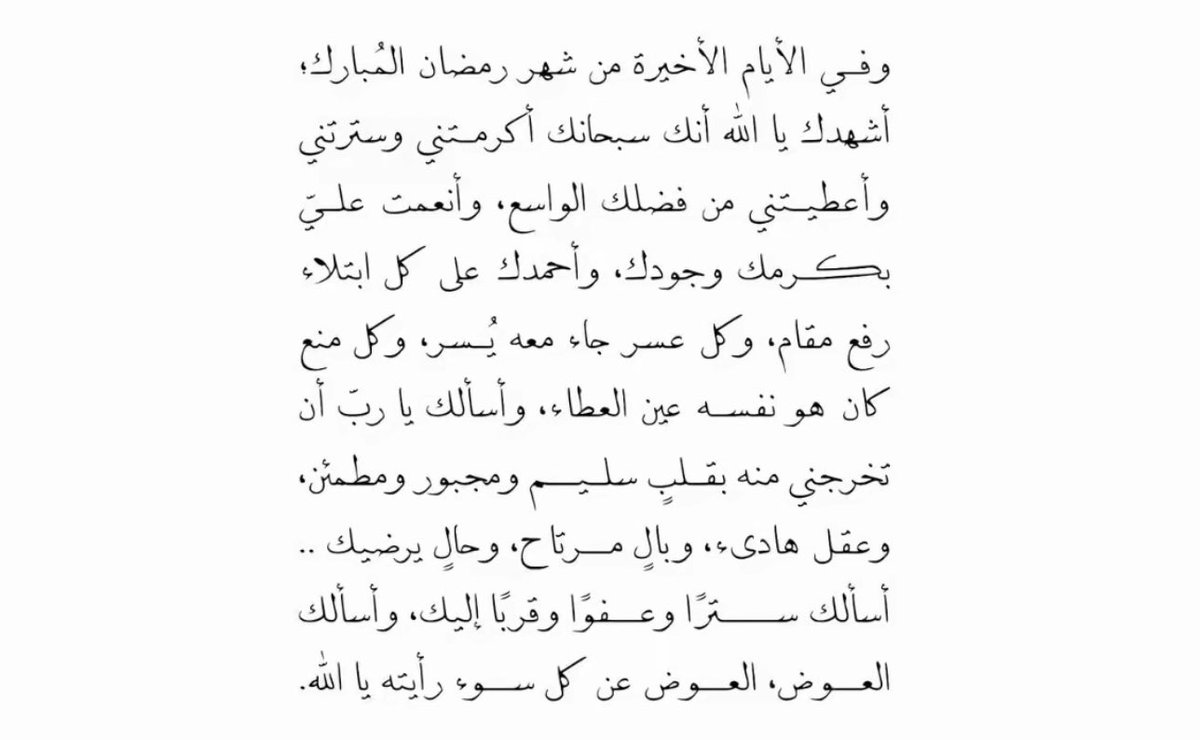 وفي الأيام الأخيرة من شهر رمضان المُبارك؛
أشهدك يا الله أنك سبحانك أكرمتني وسترتني
وأعطيتني من فضلك الواسع، وأنعمت عليّ
بكرمك وجودك، وأحمدك على كل ابتلاء
رفع مقام، وكل عسر جاء معه يُسر، وكل منع
كان هو نفسه عين العطاء، وأسألك يا ربّ أن
تخرجني منه بقلبٍ سليم ومجبور ومطمئن،
وعقل هادىء، وبالٍ مرتاح، وحالٍ يرضيك ..
أسألك سترًا وعفوًا وقربًا إليك، وأسألك
العوض، العوض عن كل سوء رأيته يا الله.